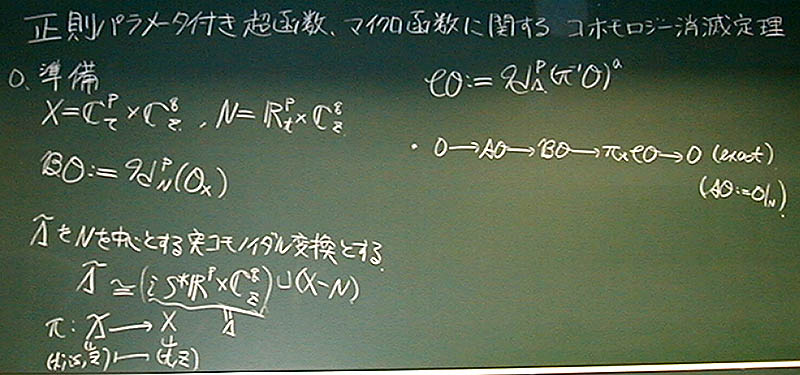 正則パラメータ付き超函数、マイクロ函数に関する コホモロジー消滅定理
0. 準備
X=ℂ_τ^p×ℂ_z^q , N=ℝ_t^p×ℂ_z^q
ℬ𝒪:=ℋ_N^p(𝒪_X)
をNを中心とする実コモノイダル変換とする
≃(iS*ℝ^p×ℂ_z^q)∪(X-N)
π: → X
(t,z)
𝒞𝒪:= (π^{-1}𝒪)^a
・ 0→𝒜𝒪→ℬ𝒪→π_*𝒞𝒪→0 (exact)
(𝒜𝒪:=𝒪|_N)